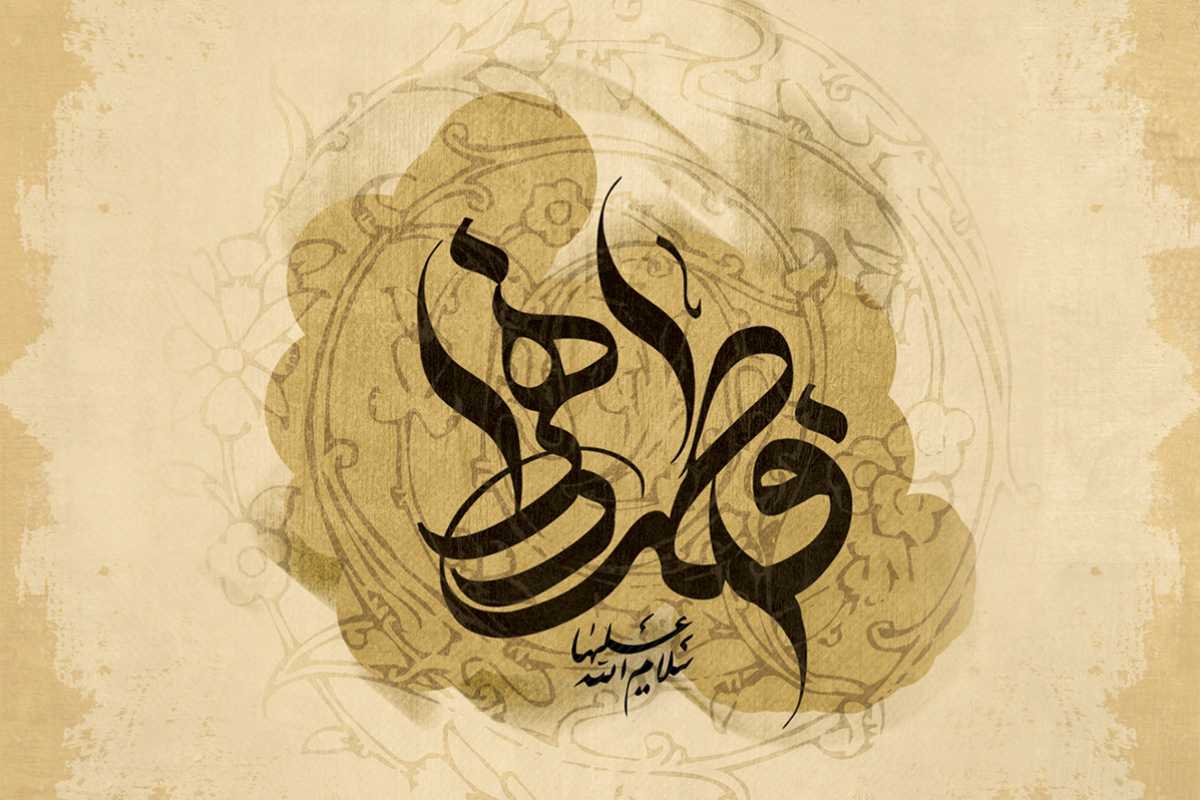 فاطمه زهرا
سلام الله
علیها